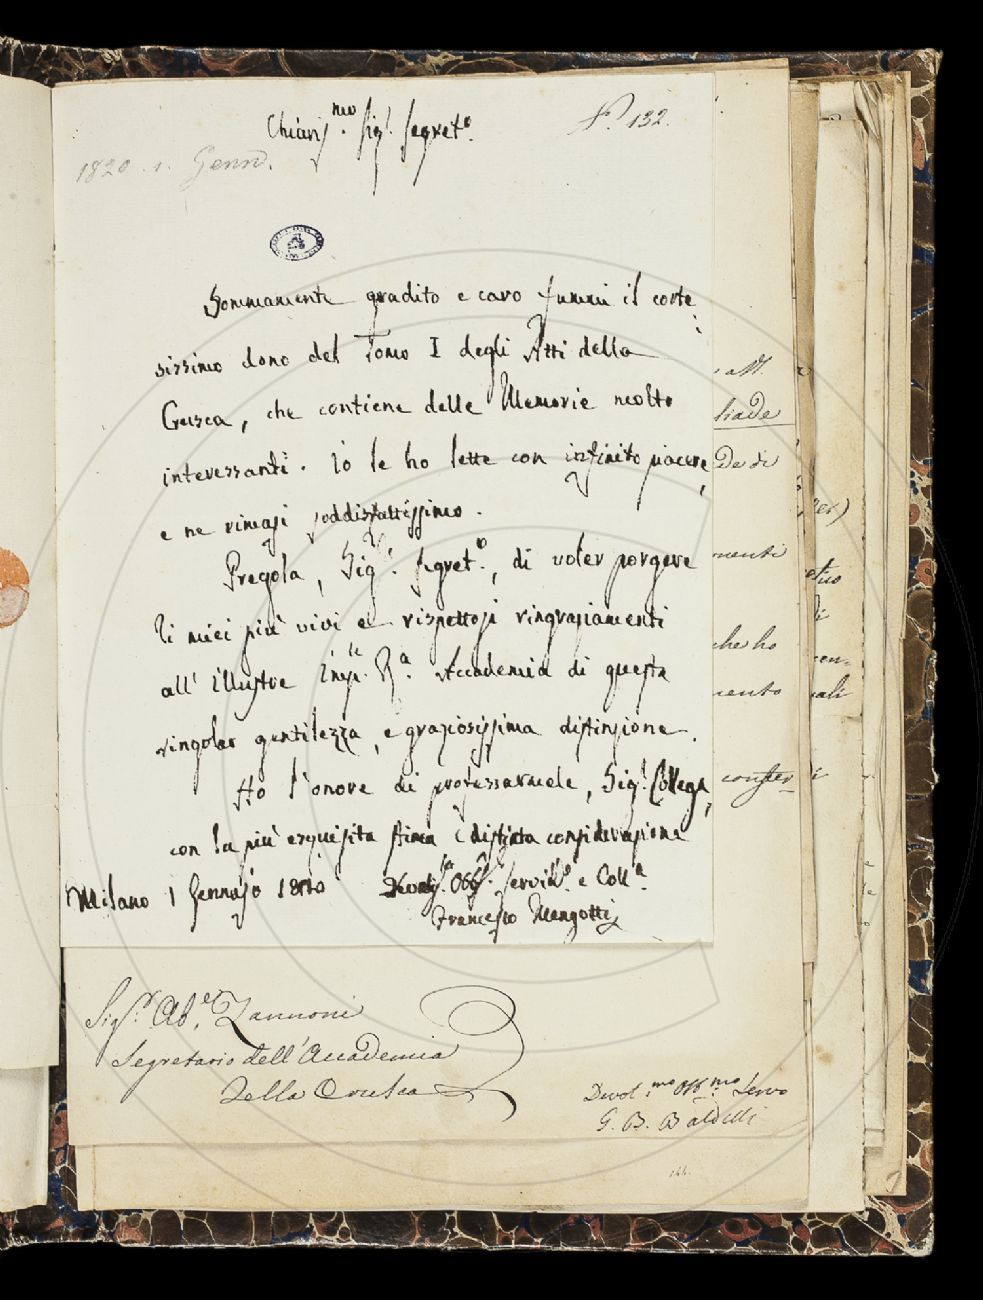 Chiariss.mo Sig.r Segret.o
N.o 132.
1820. 1. Genn.
Sommamente gradito e caro fummi il corte-
sissimo dono del Tomo I degli Atti della
Crusca, che contiene delle Memorie molto
interessanti. Io le ho lette con infinito piacere,
e ne rimasi soddisfattissimo.
Pregola, Sig.r Segret.o, di voler porgere
li miei più vivi e rispettosi ringraziamenti
all' illustre Imp.le R.a Accademia di questa
singolar gentilezza, e graziosissima distinzione.
Ho l'onore di professarmele, Sig.r Collega,
con la più esquisita stima e distinta considerazione
Milano 1 Gennajo 1820
Servid.e e Coll.a
Francesco Mengotti
Sig.r Ab.e Zannoni
Segretario dell'Accademia
della Crusca
Devot.mo Obb.mo Servo
G. B. Baldelli
144.
liade
de di
menti
che ho
mento